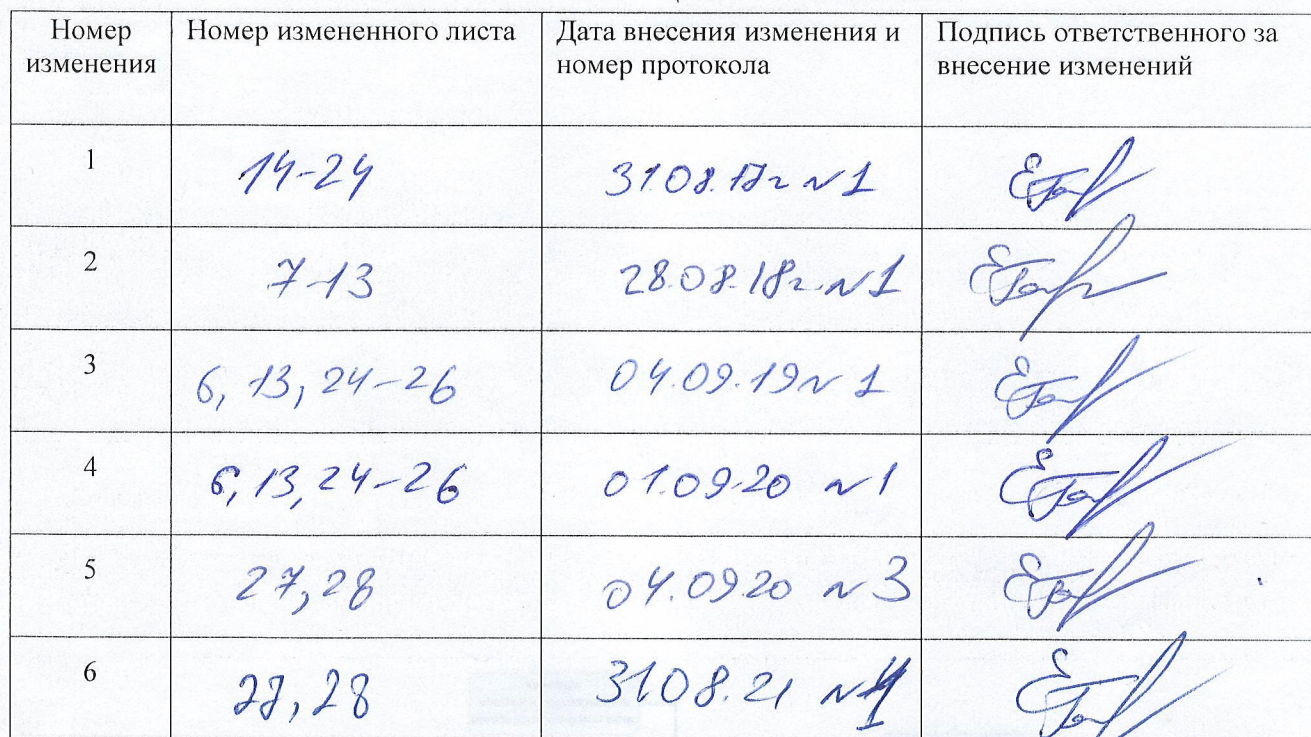 Номер изменения
Номер измененного листа
Дата внесения изменения и номер протокола
Подпись ответственного за внесение изменений
1
14-24
31.08.17г №1
2
7-13
28.08.18г. №1
3
6, 13, 24-26
04.09.19 №1
4
6, 13, 24-26
01.09.20 №1
5
27, 28
04.09.20 №3
6
27, 28
31.08.21